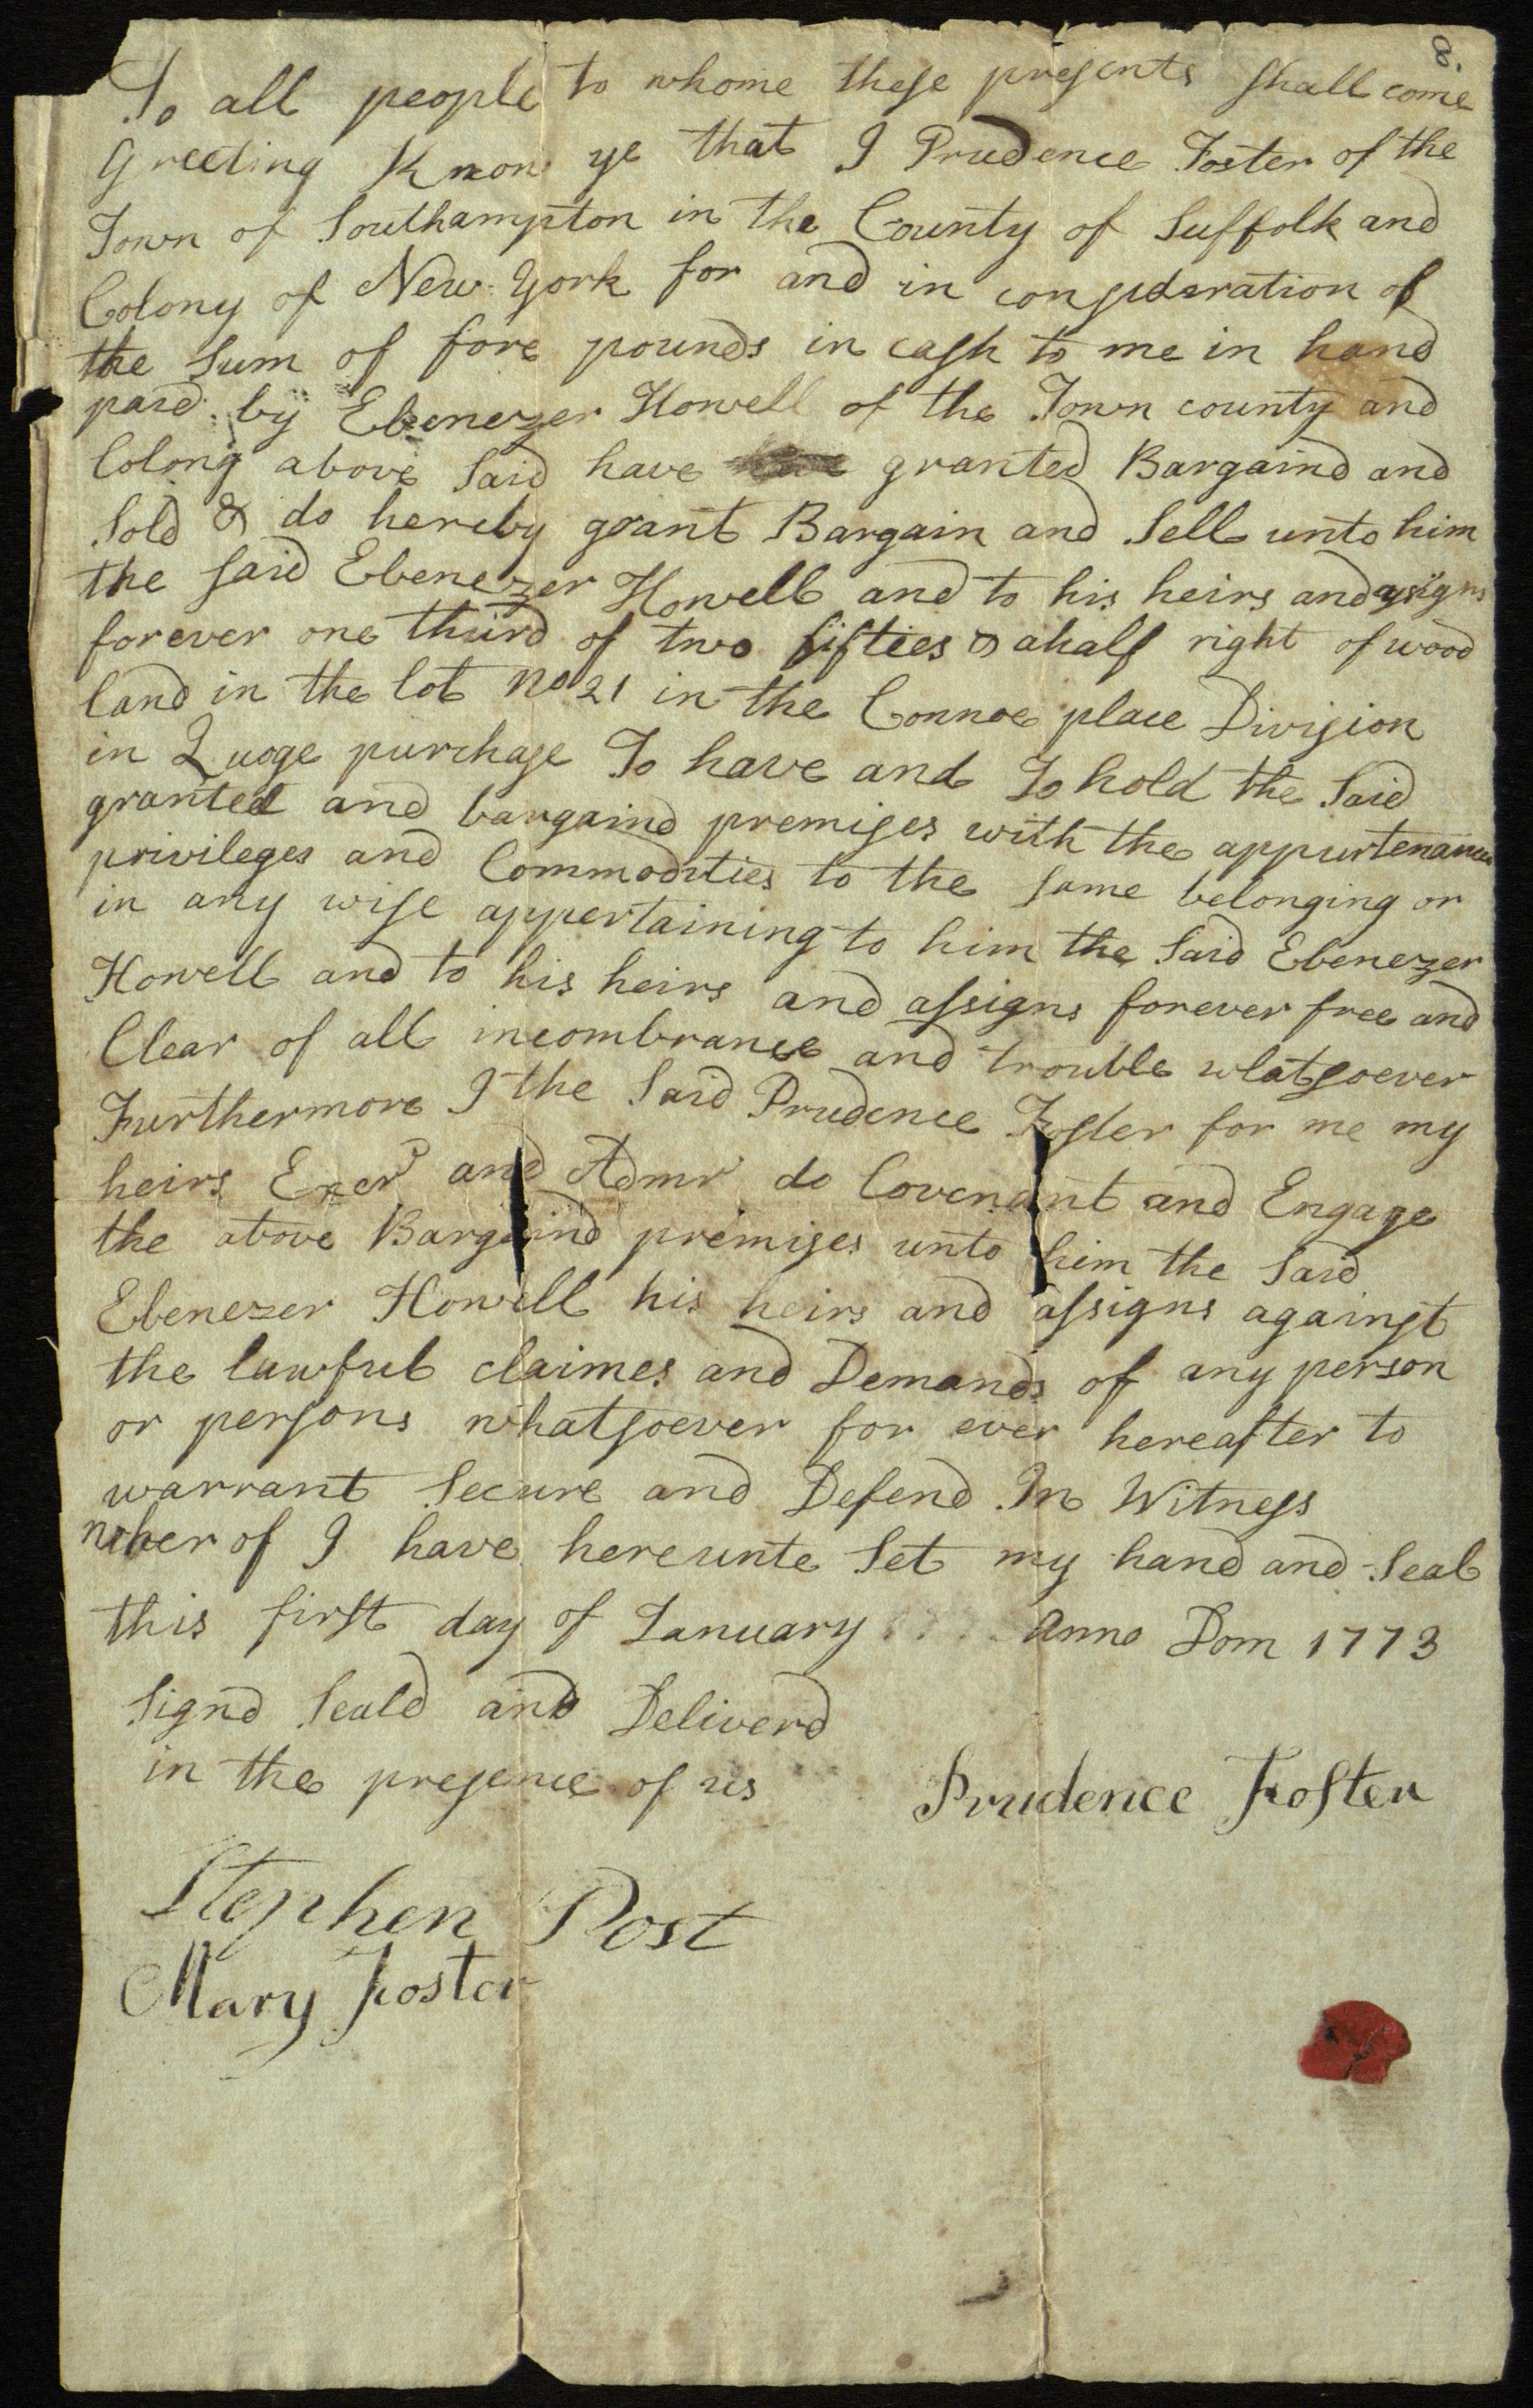 8.
To all people to whome these presents shall come
Greeting Know ye that I Prudence Foster of the
Town of Southampton in the County of Suffolk and
Colony of New York for and in consideration of
the Sum of fore pounds in cash to me in hand
paid by Ebenezer Howell of the Town county and
Colony above Said have granted Bargaind and
Sold & do hereby grant Bargain and Sell unto him
the said Ebenezer Howell and to his heirs and asigns
forever one third of two fifties & a half right of wood
land in the lot No 21 in the Connoe place Division
in Quoge purchase To have and To hold the Said
granted and bargaind premises with the appurtenances
privileges and Commodities to the same belonging or
in any wise appertaining to him the Said Ebenezer
Howell and to his heirs and assigns forever free and
Clear of all incombrance and trouble whatsoever
Furthermore I the Said Prudence Foster for me my
heirs Exer and Admr do Covenant and Engage
the above Bargaind premises unto him the Said
Ebenezer Howell his heirs and assigns against
the lawful claimes and Demands of any person
or persons whatsoever for ever hereafter to
warrant Secure and Defend In Witness
wherof I have hereunte Set my hand and Seal
this first day of January Anno Dom 1773
Signd Seald and Deliverd
in the presence of us
Prudence Foster
Stephen Post
Mary Foster